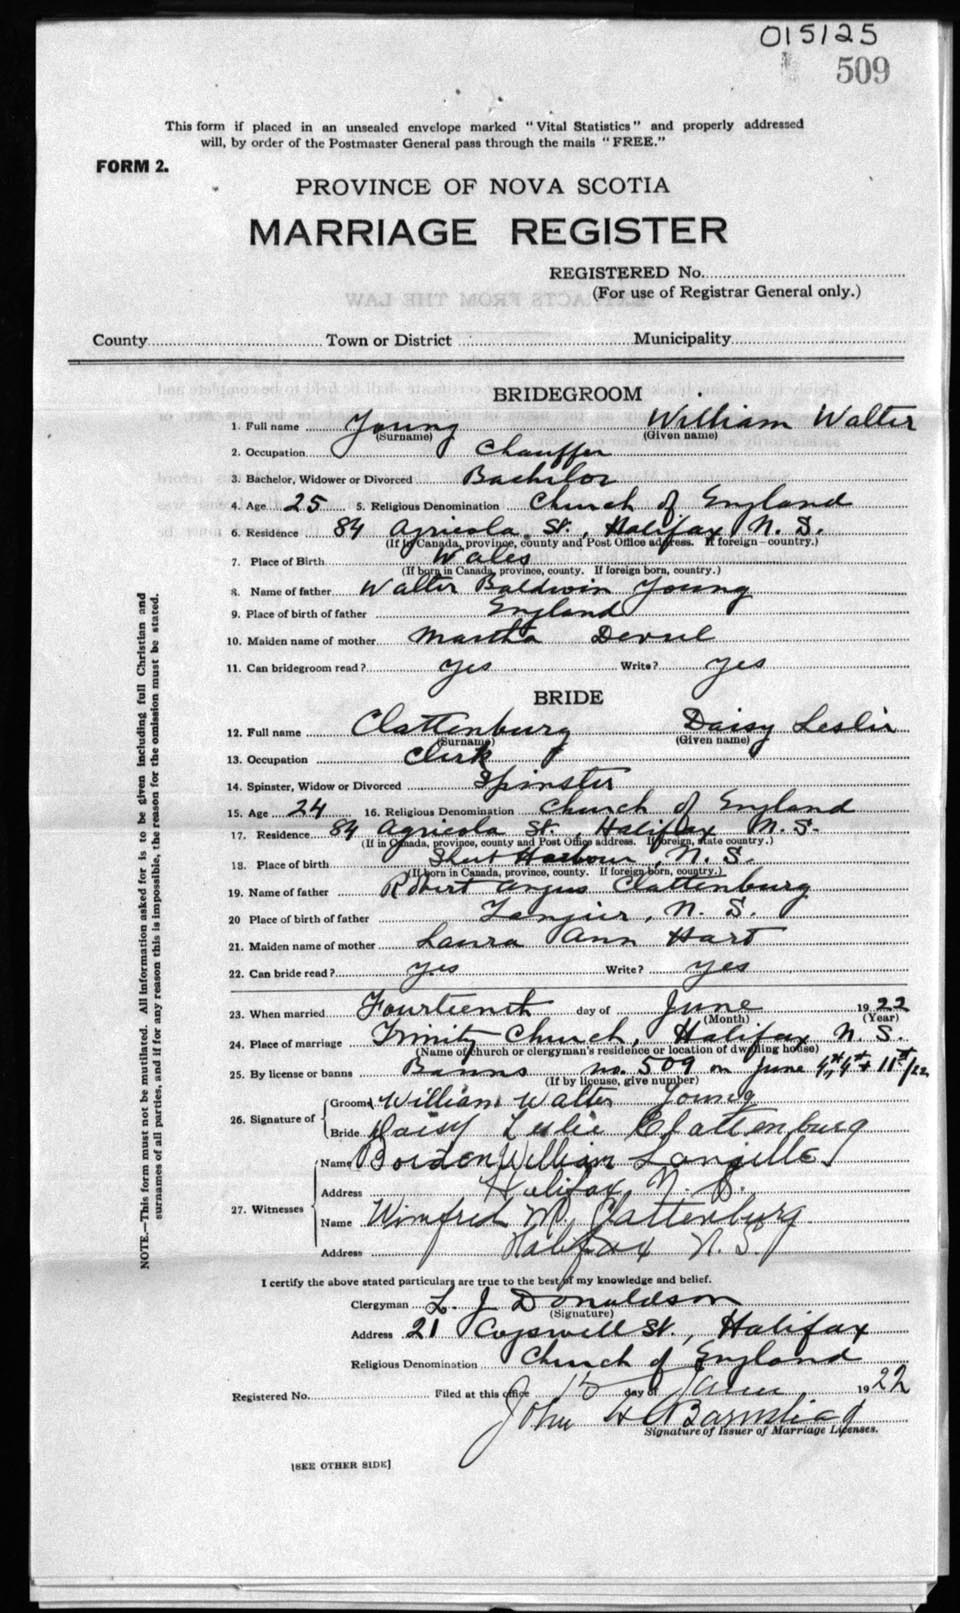 015125
509
This form if placed in an unsealed envelope marked "Vital Statistics" and properly addressed
will, by order of the Postmaster General pass through the mails "FREE."
FORM 2.
PROVINCE OF NOVA SCOTIA
MARRIAGE REGISTER
REGISTERED No.
(For use of Registrar General only.)
County Town or District Municipality
BRIDEGROOM
1. Full name Young William Walter
(Surname) (Given name)
2. Occupation Chauffer
3. Bachelor, Widower or Divorced Bachelor
4. Age 25 5. Religious Denomination Church of England
6. Residence 84 Agricola St., Halifax N. S.
(If in Canada, province, county and Post Office address. If foreign-country.)
7. Place of Birth Wales
(If born in Canada, province, county. If foreign born, country.)
8. Name of father Walter Baldwin Young
9. Place of birth of father England
10. Maiden name of mother Martha
11. Can bridegroom read? yes Write? yes
BRIDE
12. Full name Clattenburg Daisy Leslie
(Surname) (Given name)
13. Occupation Clerk
14. Spinster, Widow or Divorced Spinster
15. Age 24 16. Religious Denomination Church of England
17. Residence 84 Agricola St., Halifax N. S.
(If in Canada, province, county and Post Office address. If foreign, state country.)
18. Place of birth Harbour, N. S.
(If born in Canada, province, county. If foreign born, country.)
19. Name of father Robert Angus Clattenburg
20 Place of birth of father Tangier, N. S.
21. Maiden name of mother Laura Ann Hart
22. Can bride read? yes Write? yes
23. When married Fourteenth day of June 1922
(Month) (Year)
24. Place of marriage Trinity Church, Halifax N. S.
(Name of church or clergyman's residence or location of dwelling house)
25. By license or banns Banns no. 509 on June 4th & 11th/22
(If by license, give number)
26. Signature of Groom William Walter Young
Bride Daisy Leslie Clattenburg
27. Witnesses Name Borden William Langille
Address Halifax, N. S.
Name Winifred M. Clattenburg
Address Halifax N. S.
I certify the above stated particulars are true to the best of my knowledge and belief.
Clergyman L. J Donaldson
(Signature)
Address 21 Cogswell St., Halifax
Religious Denomination Church of England
Registered No. Filed at this office 15 day of June 1922
John
Signature of Issuer of Marriage Licenses.
[SEE OTHER SIDE]
NOTE.—This form must not be mutilated. All information asked for is to be given including full Christian and
surnames of all parties, and if for any reason this is impossible, the reason for the omission must be stated.